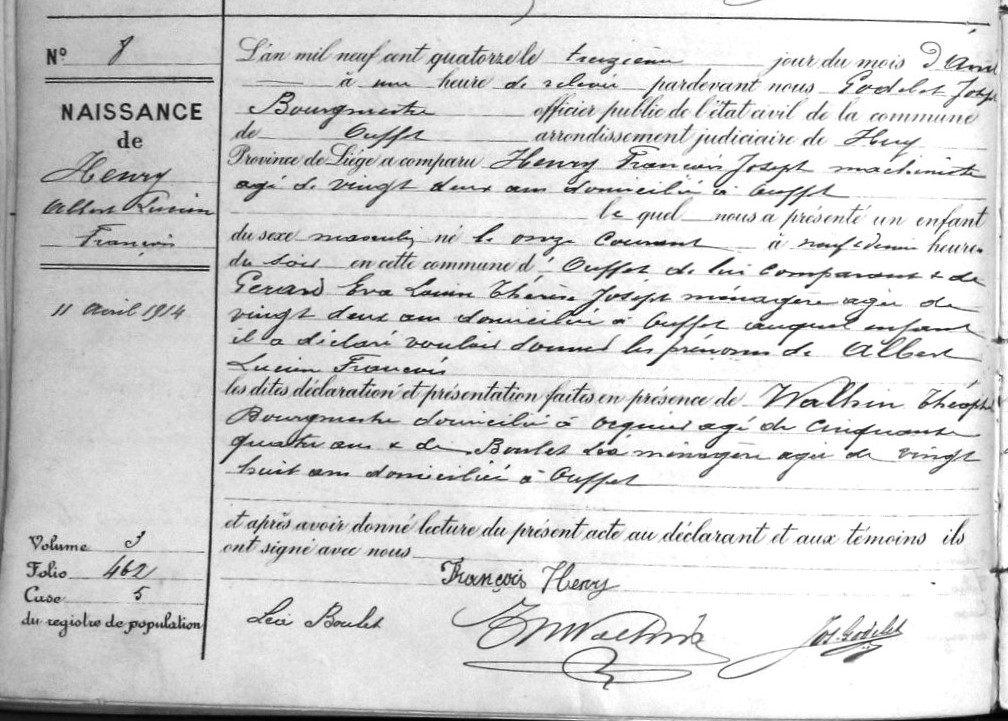 N° 8
NAISSANCE
de
Henry
Albert Lucien
François
11 avril 1914
Volume 3
Folio 462
Case 5
du registre de population
L'an mil neuf cent quatorze le treizième jour du mois d'Avri
à une heure de relevée pardevant nous Godelet Josep
Bourgmestre officier public de l'état civil de la commune
de Ouffet arrondissement judiciaire de Huy
Province de Liége a comparu Henry François Joseph machiniste
agé de vingt deux ans domicilié à Ouffet
le quel nous a présenté un enfant
du sexe masculin né le onze courant à neuf & demie heures
du soir en cette commune d' Ouffet de lui comparant & de
Gerard Eva Louise Thérèse Joseph ménagère agée de
vingt deux ans domiciliée à Ouffet auquel enfant
il a déclaré vouloir donner les prénoms de Albert
Lucien François
les dites déclaration et présentation faites en présence de Walhin Théoph
Bourgmestre domicilié à agé de cinquante
quatre ans & de Boulet Léa ménagère agée de vingt
huit ans domiciliée à Ouffet
et après avoir donné lecture du présent acte au déclarant et aux témoins ils
ont signé avec nous
François Henry
Léa Boulet
Walhin
Jos. Godelet